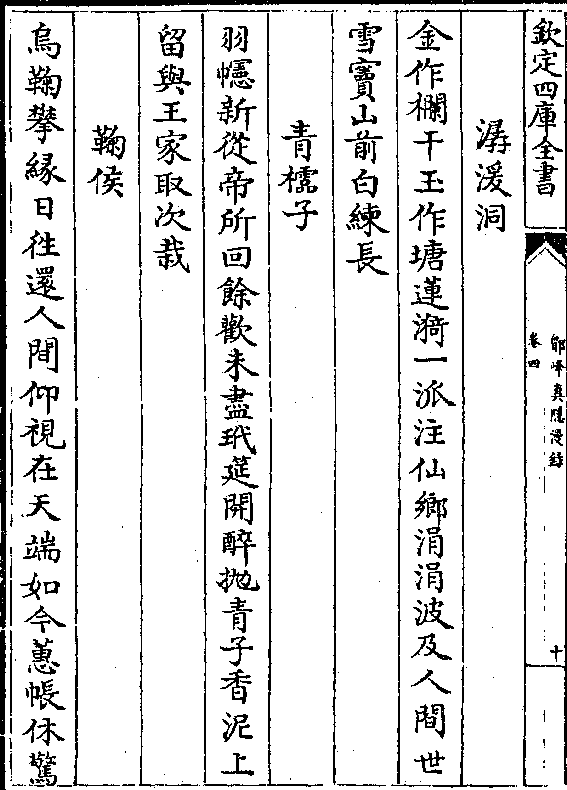 欽定四庫全書
鄮峰真隱漫録
卷四
十
潺湲洞
金作欄干玉作塘蓮漪一派注仙鄉涓涓波及人間世
雪竇山前白練長
青櫺子
羽幰新從帝所回餘歡未盡玳筵開醉抛青子香泥上
留與王家取次栽
鞠侯
烏鞠攀緣日往還人間仰視在天端如今蕙帳休驚